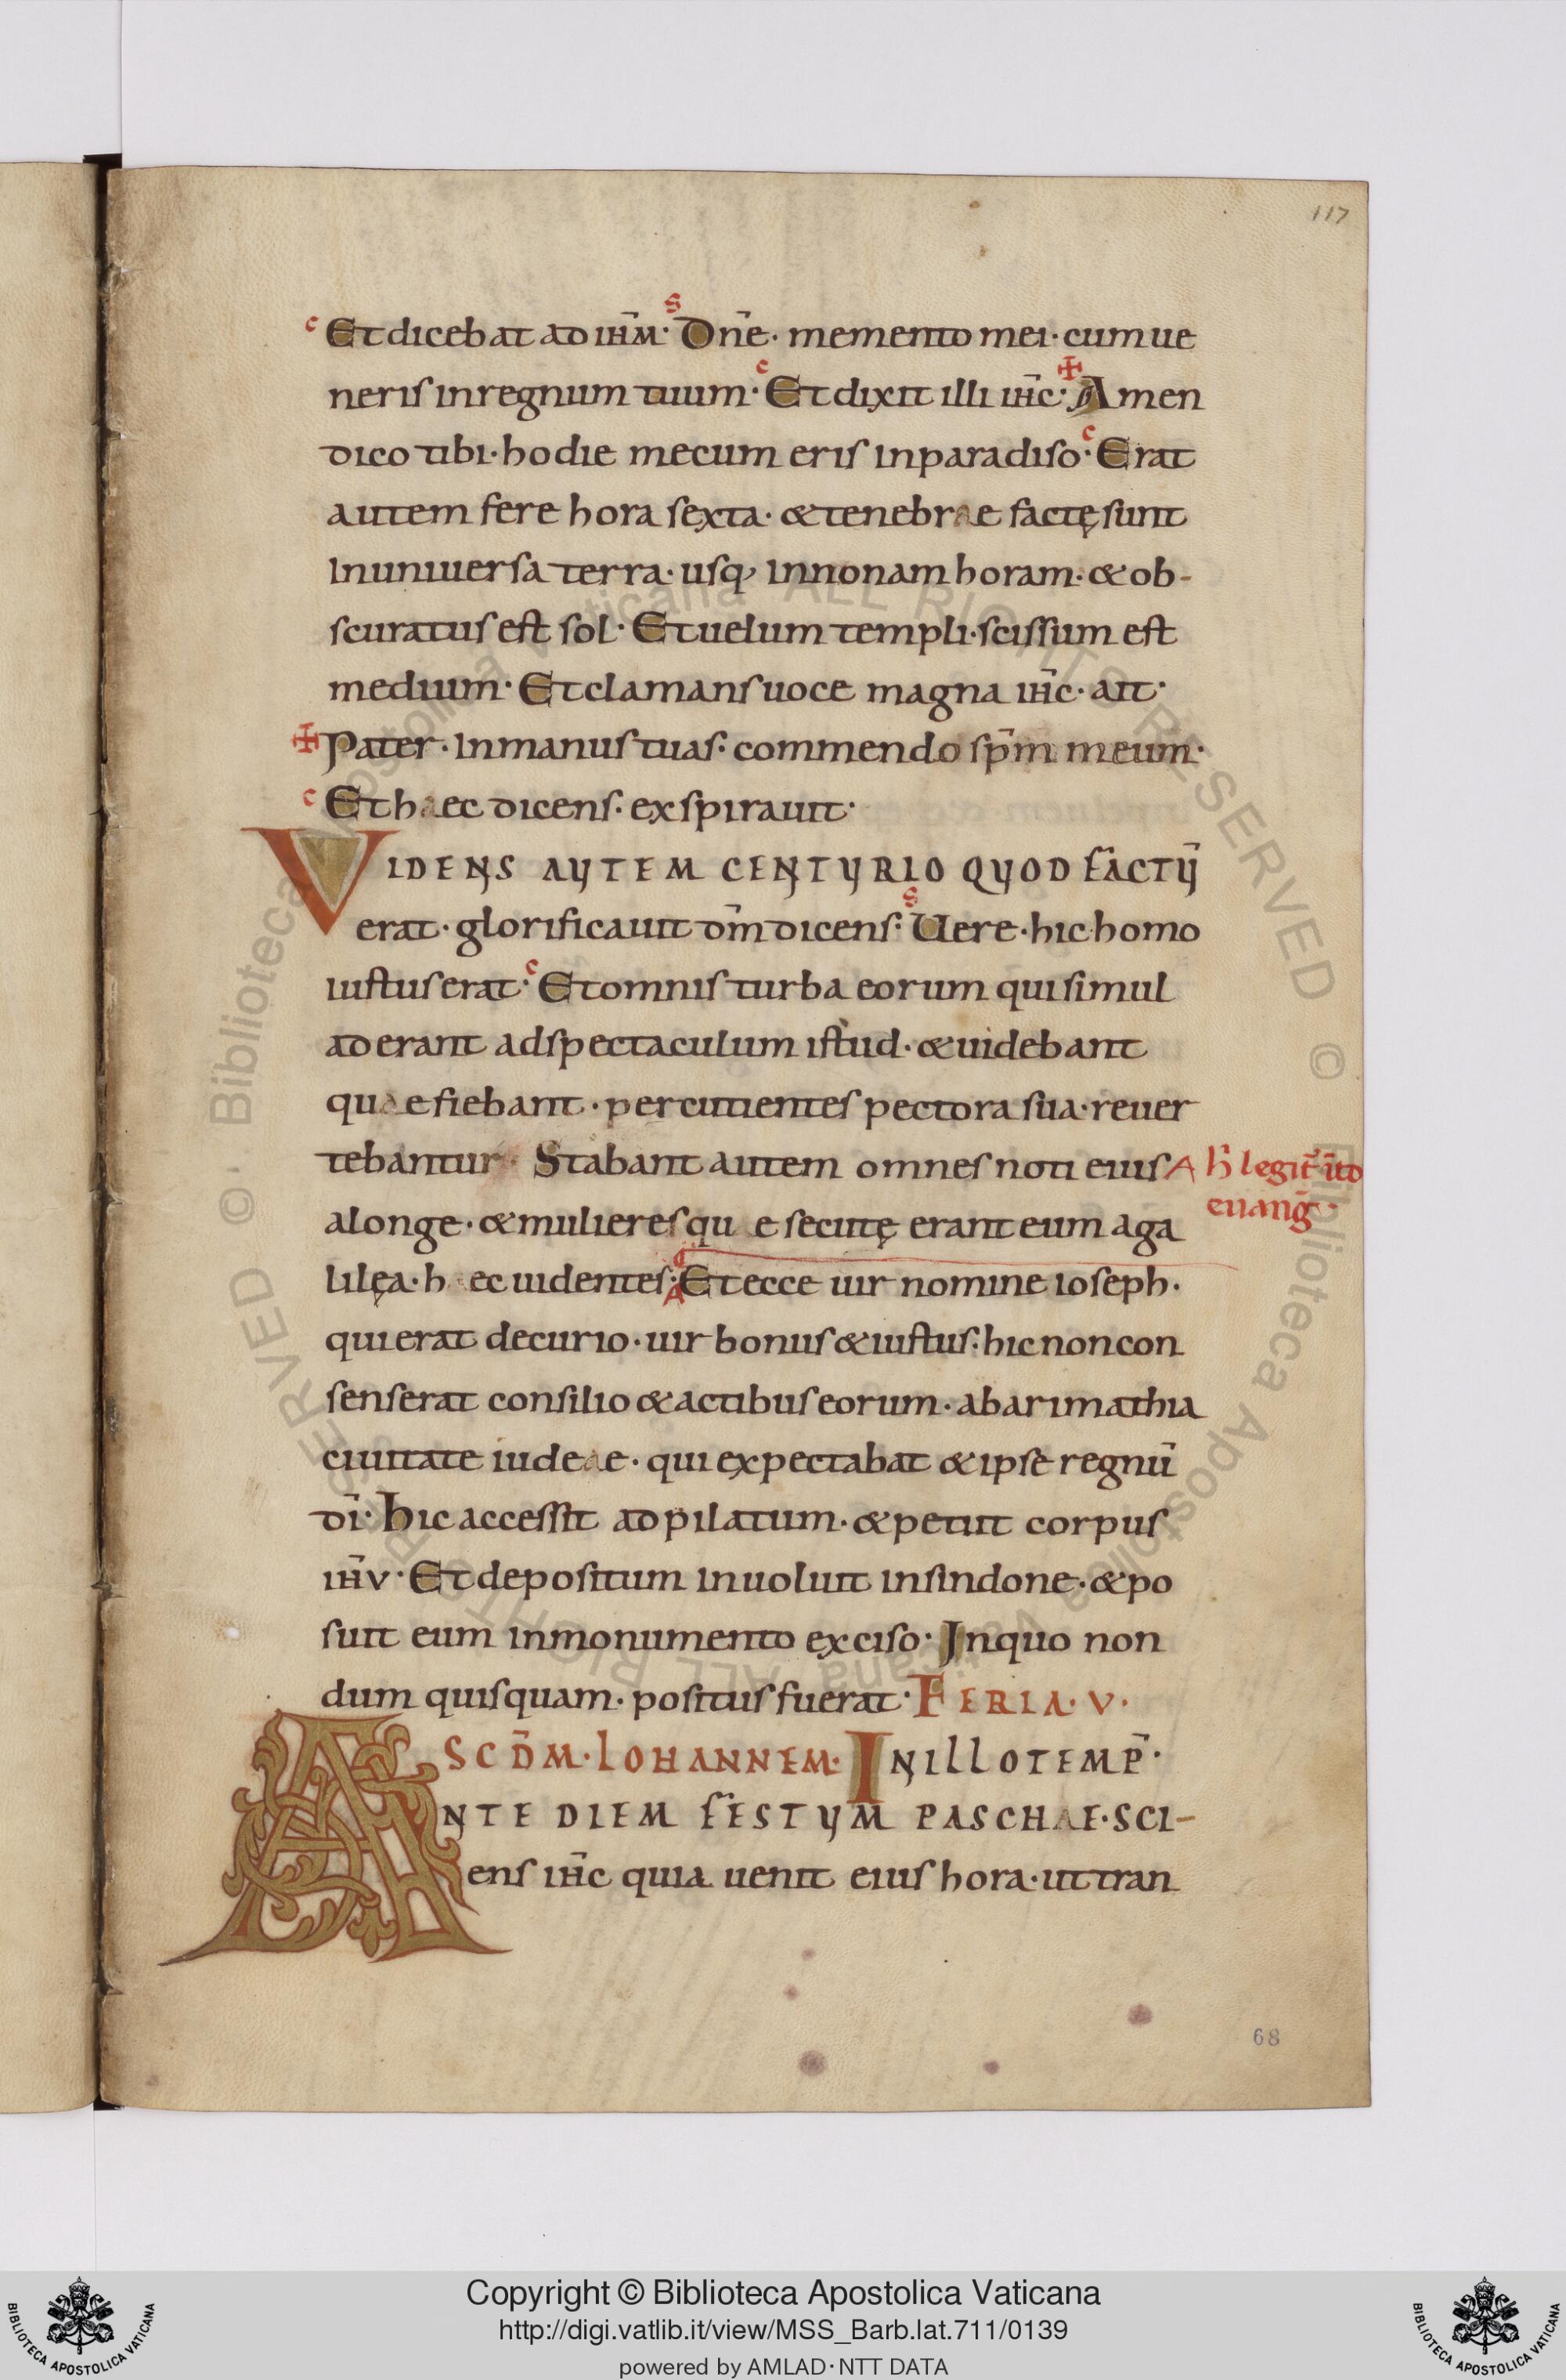 117
c Et dicebat ad ihm̄· s Dn̄e· memento mei· cum ue
neris in regnum tuum· c Et dixit illi ihc̄· ✠ Amen
dico tibi· hodie mecum eris in paradiso· c Erat
autem fere hora sexta· & tenebrae factę sunt
in uniuersa terra· usq, in nonam horam· & ob-
scuratus est sol· Et uelum templi· scissum est
medium· Et clamans uoce magna ihc̄· ait·
✠ Pater· in manus tuas· commendo sp̄m meum·
c Et haec dicens· exspirauit·
VIDENS AUTEM CENTURIO QUOD FACTŪ
erat· glorificauit dm̄ dicens· s Uere· hic homo
iustus erat· c Et omnis turba eorum qui simul
aderant ad spectaculum istud· & uidebant
quae fiebant· percutientes pectora sua· reuer
tebantur· Stabant autem omnes noti eius
A h̄ legit̄ īto
euanḡ·
a longe· & mulieres qu e secutę erant eum a ga
lilęa· h ec uidentes· A Et ecce uir nomine ioseph·
qui erat decurio· uir bonus & iustus· hic non con
senserat consilio & actibus eorum· ab arimathia
ciuitate iudeae· qui expectabat & ipse regnū
dī· Hic accessit ad pilatum· & petiit corpus
ihū· Et depositum inuoluit in sindone· & po
suit eum in monumento exciso· In quo non
dum quisquam· positus fuerat· FERIA· V·
SCD̄M· IOHANNEM· IN ILLO TEMP̄·
ANTE DIEM FESTUM PASCHAE· SCI-
ens ihc̄ quia uenit eius hora· ut tran
68
Copyright © Biblioteca Apostolica Vaticana
http://digi.vatlib.it/view/MSS_Barb.lat.711/0139
powered by AMLAD·NTT DATA
BIBLIOTECA APOSTOLICA VATICANA
BIBLIOTECA APOSTOLICA VATICANA